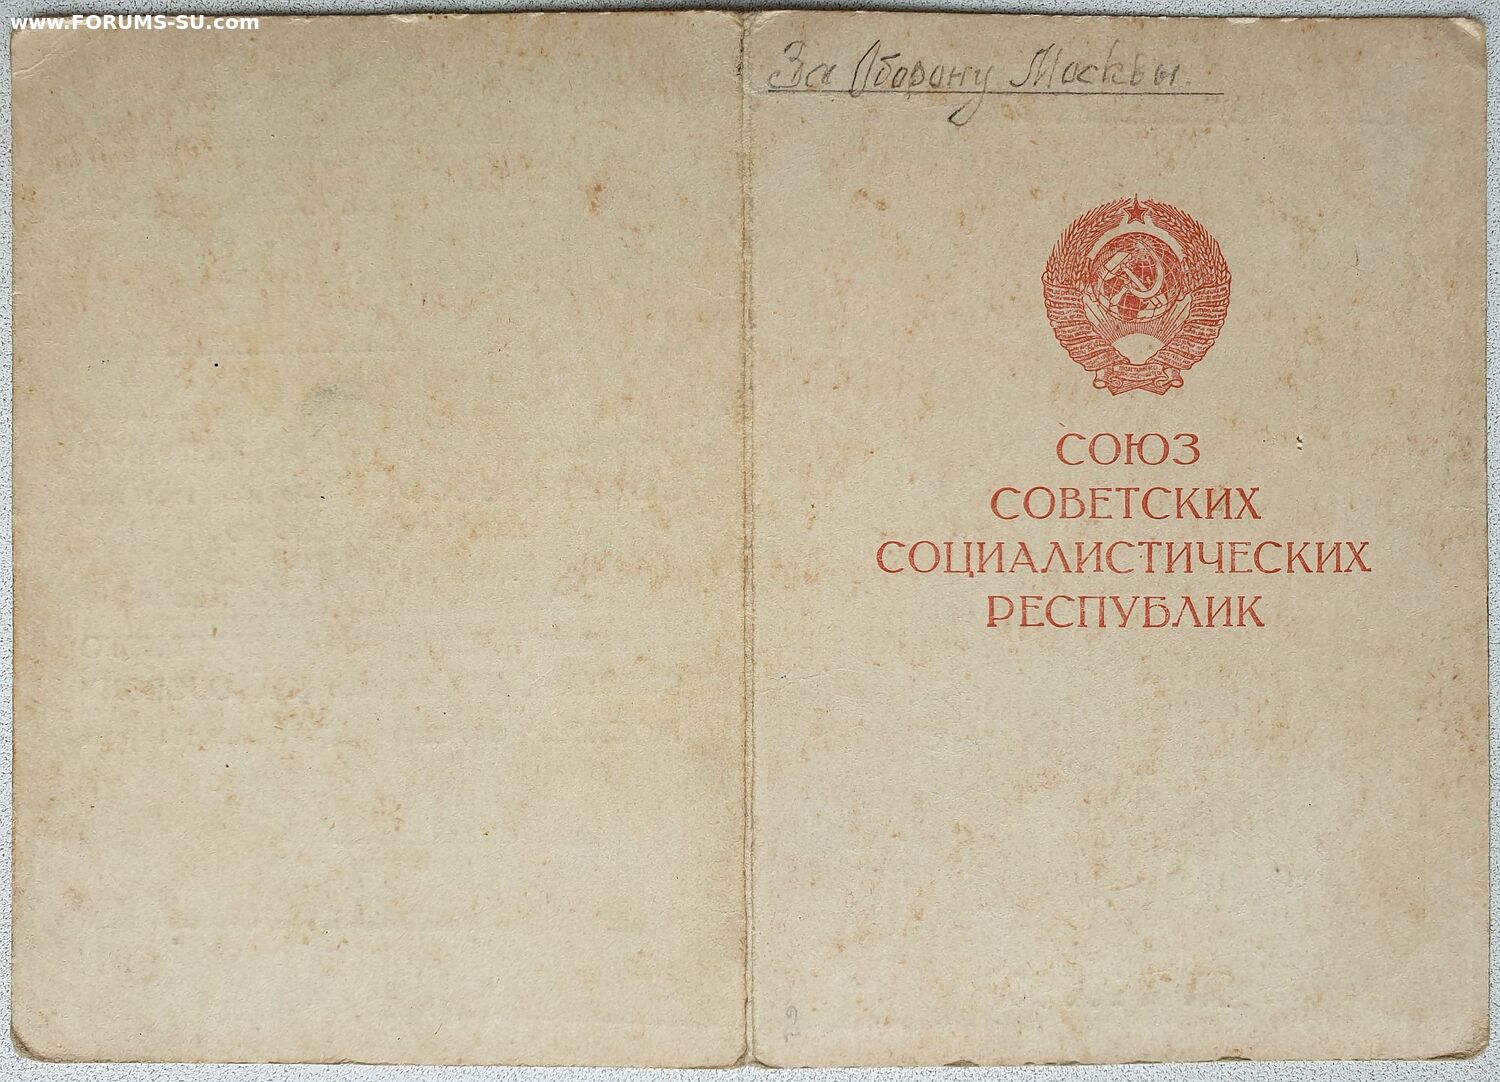 www.FORUMS-SU.com
За Оборону Москвы.
СОЮЗ
СОВЕТСКИХ
СОЦИАЛИСТИЧЕСКИХ
РЕСПУБЛИК
2